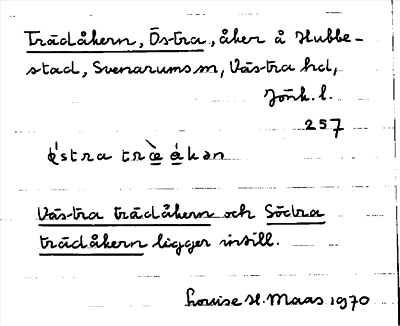 Trädåkern, Östra, åker å Hubbe-
stad, Svenarums sn, Västra hd,
Jönk. l.
257
östra træ åkən
Västra trädåkern och Södra
trädåkern ligger intill.
Louise H. Maas 1970